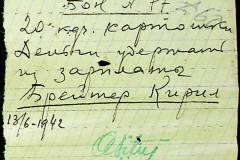 Бон № 77
20 кгр. картошки
Деньги удержать
из зарплаты
Брейтер Кирил
13/6-1942